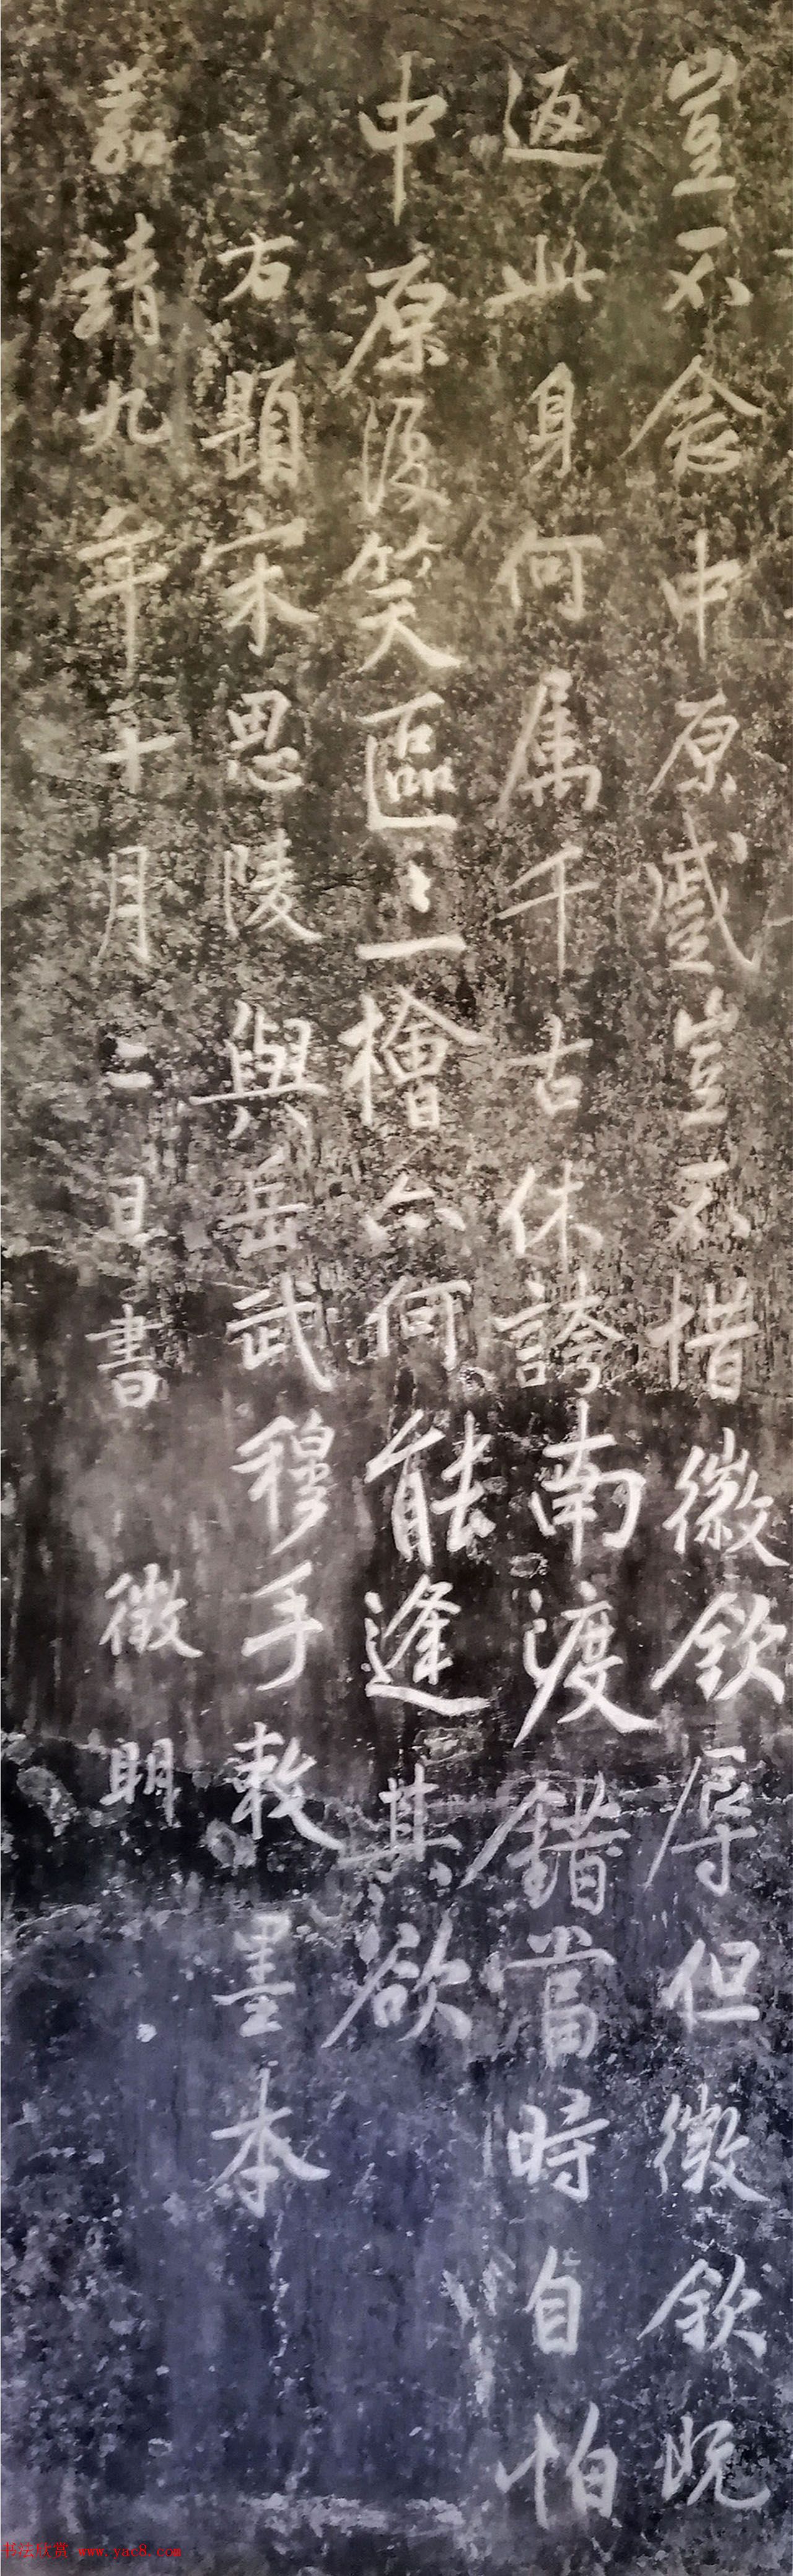 豈不念中原蹙豈不惜徽欽辱但徽欽既
返此身何属千古休誇南渡錯當時自怕
中原復笑區〻一檜亦何能逢其欲
右題宋思陵與岳武穆手敕墨本
嘉靖九年十月二日書 徵明
书法欣赏 www.yac8.com